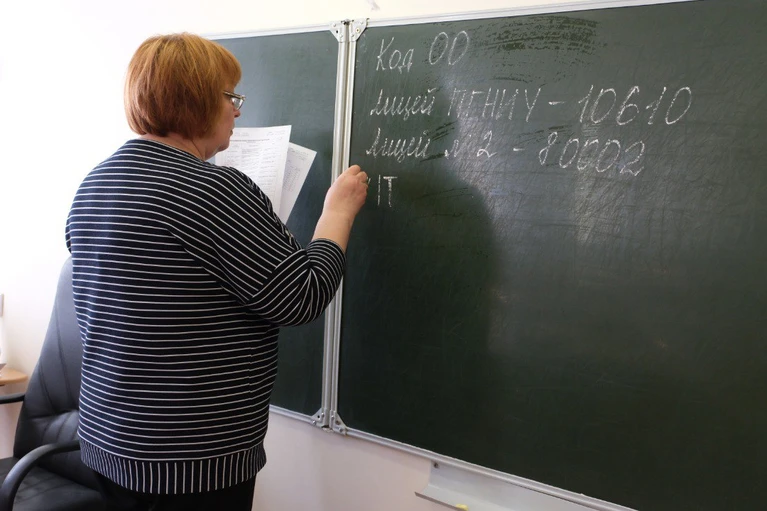 Код ОО
лицей ПГНИУ - 10610
Лицей №2 - 80602
IT